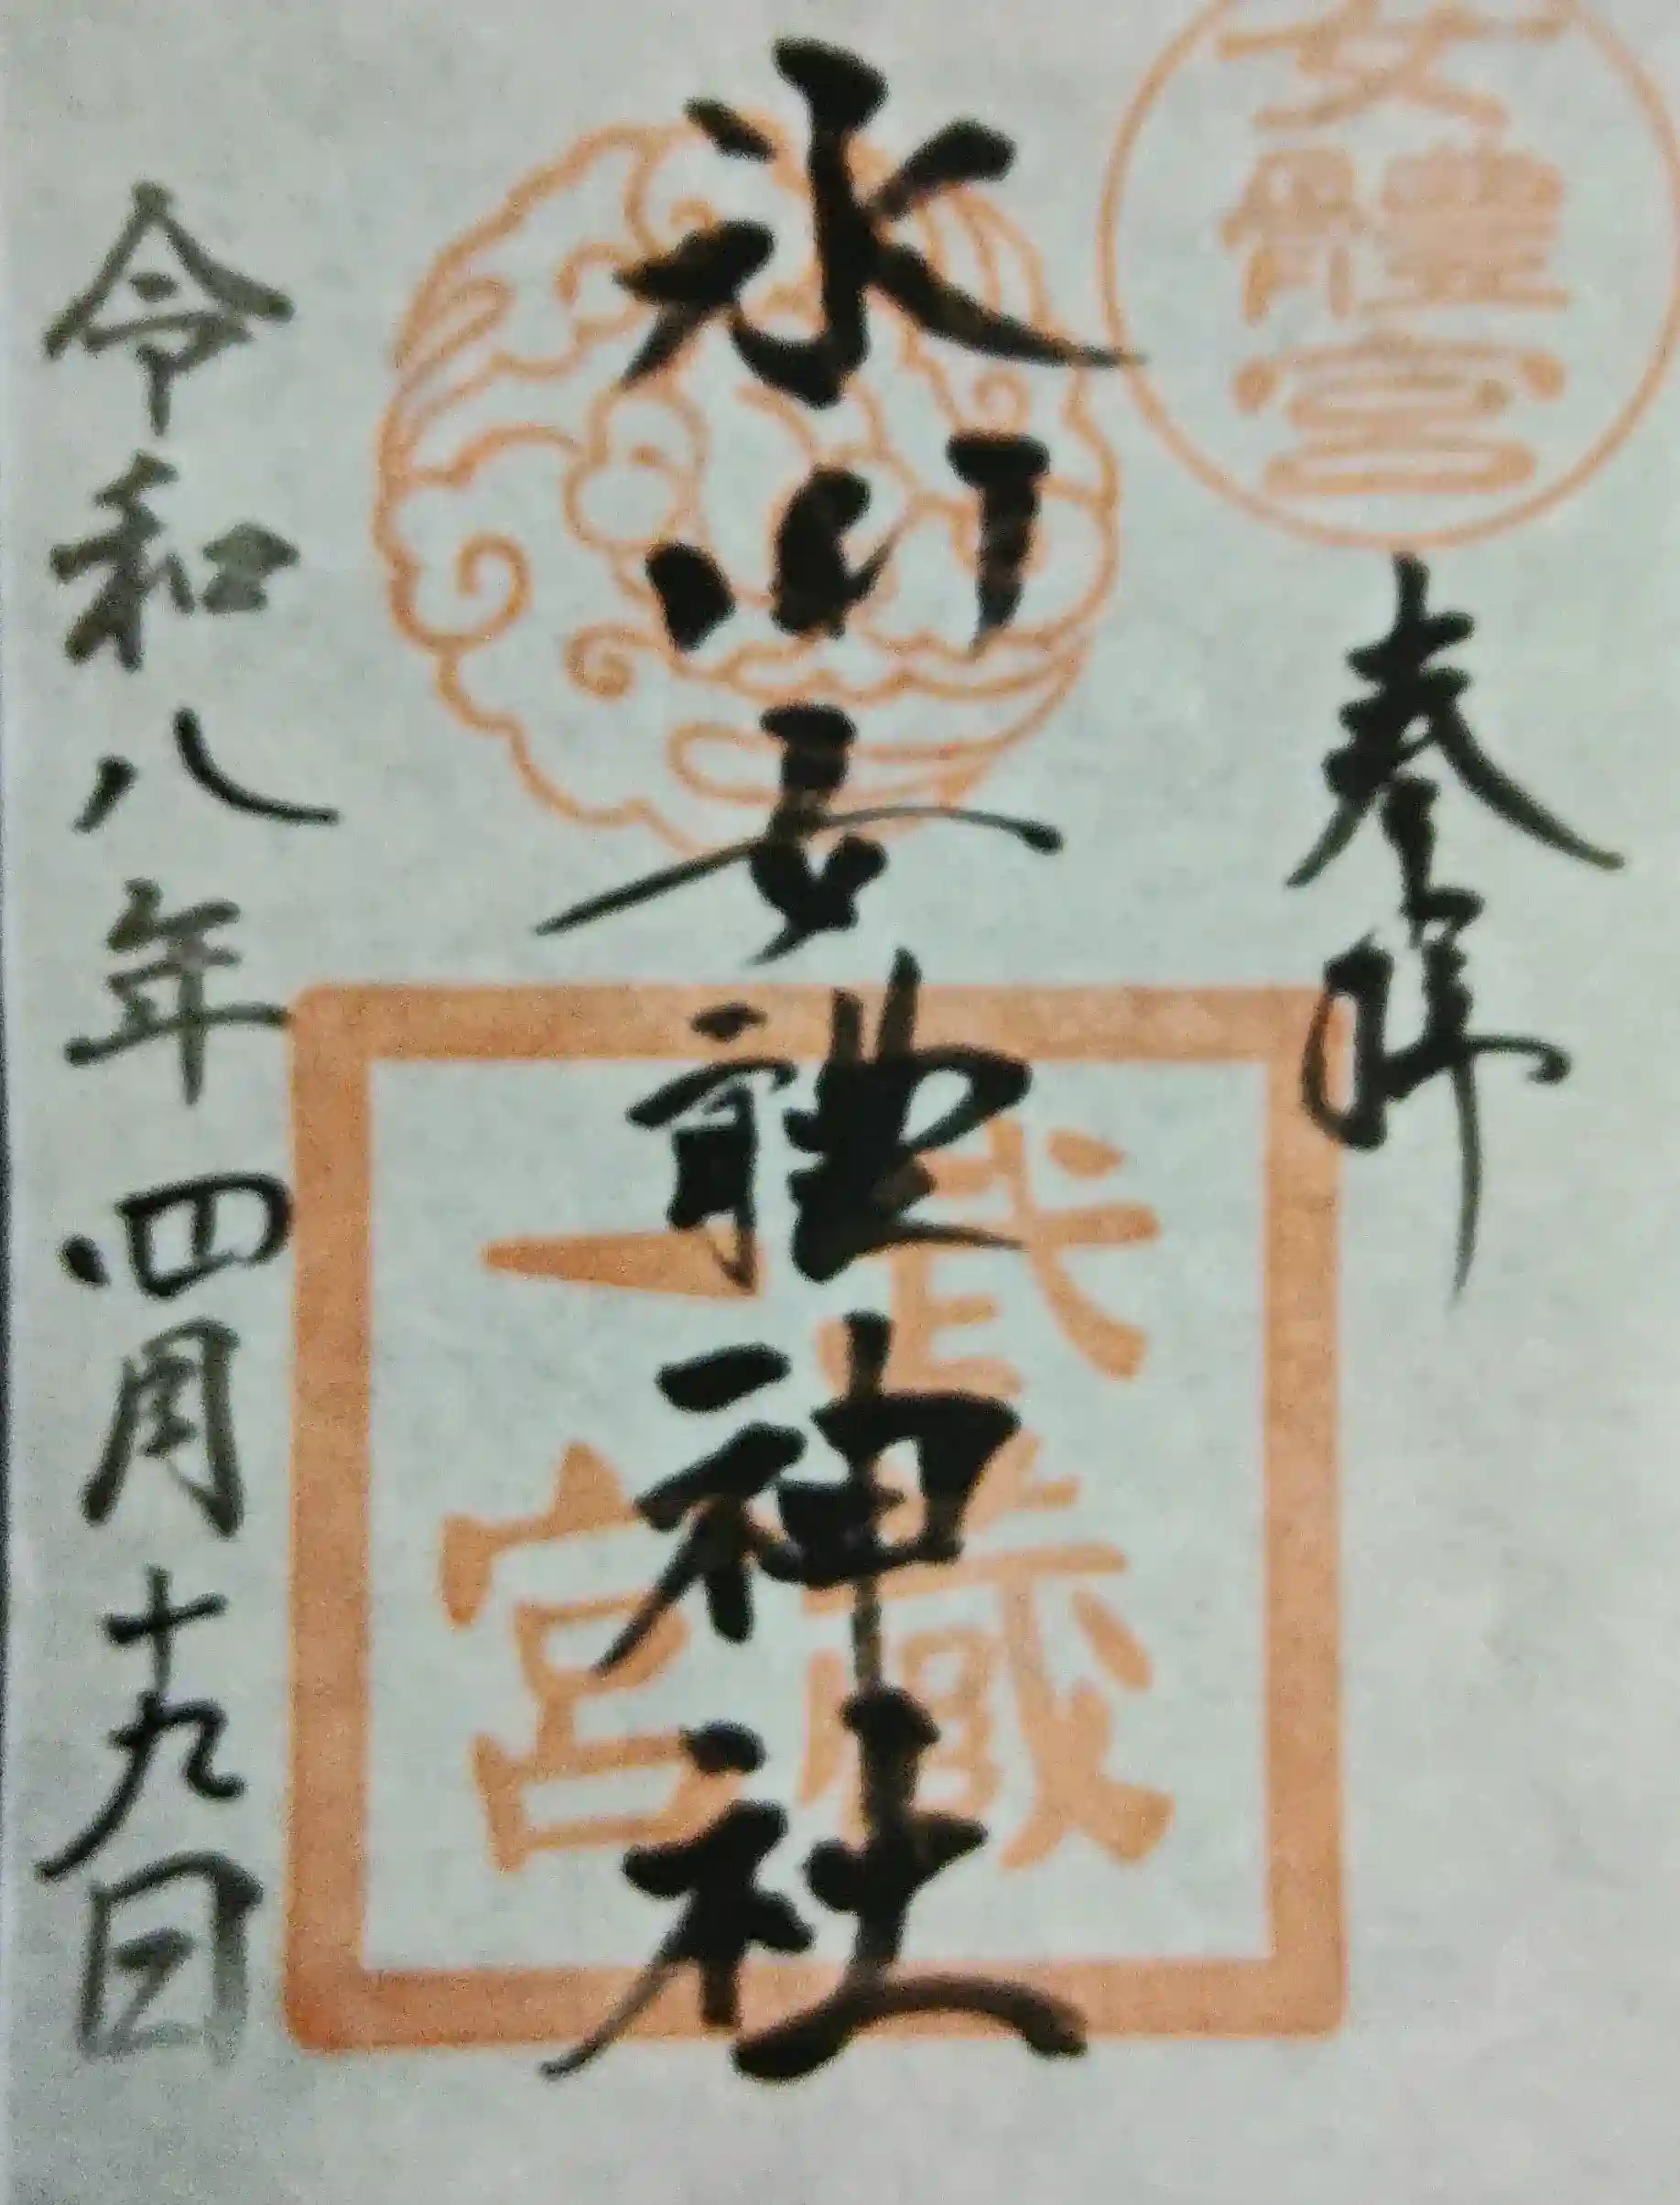 女體宮
奉拝
氷川女體神社
武蔵
一宮
令和八年四月十九日